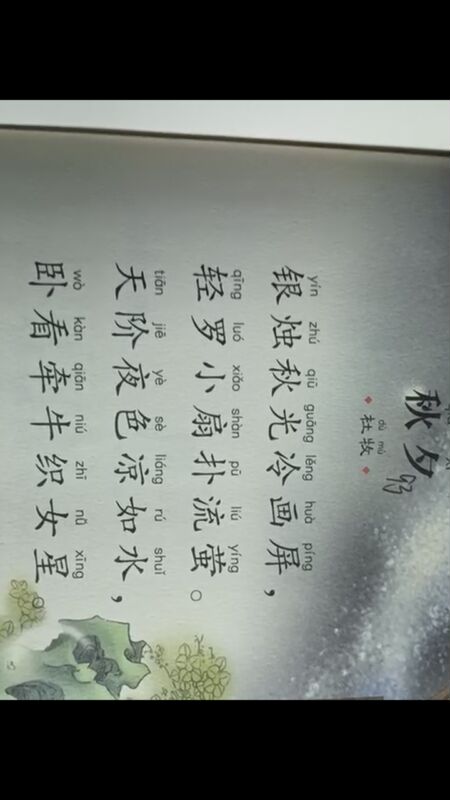 秋夕
dù mù
杜牧
yín zhú qiū guāng lěng huà píng
银烛秋光冷画屏，
qīng luó xiǎo shàn pū liú yíng
轻罗小扇扑流萤。
tiān jiē yè sè liáng rú shuǐ
天阶夜色凉如水，
wò kàn qiān niú zhī nǚ xīng
卧看牵牛织女星